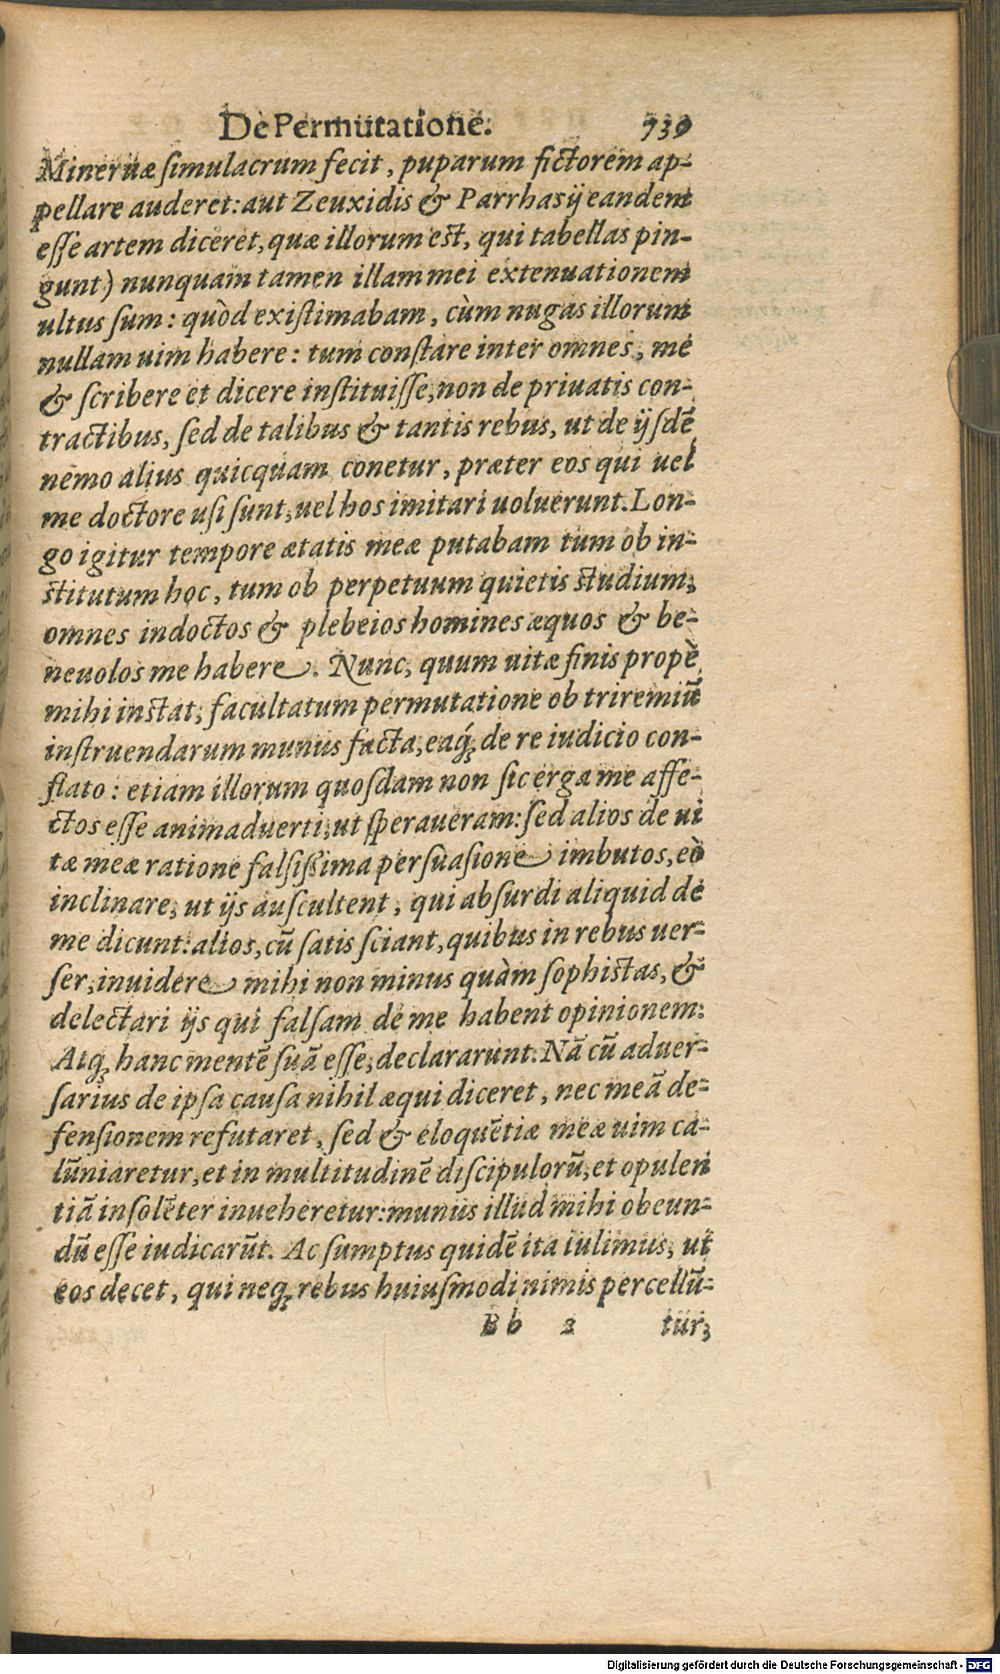 De Permutatione. 739
Mineruæ simulacrum fecit, puparum fictorem ap-
pellare auderet: aut Zeuxidis & Parrhasij eandem
esse artem diceret, quæ illorum est, qui tabellas pin-
gunt) nunquam tamen illam mei extenuationem
ultus sum: quòd existimabam, cùm nugas illorum
nullam uim habere: tum constare inter omnes, me
& scribere et dicere instituisse, non de priuatis con-
tractibus, sed de talibus & tantis rebus, ut de ijsdē
nemo alius quicquam conetur, præter eos qui uel
me doctore usi sunt, uel hos imitari uoluerunt. Lon-
go igitur tempore ætatis meæ putabam tum ob in-
stitutum hoc, tum ob perpetuum quietis studium,
omnes indoctos & plebeios homines æquos & be-
neuolos me habere. Nunc, quum uitæ finis propè
mihi instat, facultatum permutatione ob triremiū
instruendarum munus facta, eaq́; de re iudicio con-
flato: etiam illorum quosdam non sic erga me affe-
ctos esse animaduerti, ut speraueram: sed alios de ui
tæ meæ ratione falsißima persuasione imbutos, eò
inclinare, ut ijs auscultent, qui absurdi aliquid de
me dicunt: alios, cū satis sciant, quibus in rebus uer-
ser, inuidere mihi non minus quàm sophistas, &
delectari ijs qui falsam de me habent opinionem.
Atq; hanc mentē suā esse, declararunt. Nā cū aduer-
sarius de ipsa causa nihil æqui diceret, nec meā de-
fensionem refutaret, sed & eloquētiæ meæ uim ca-
lūniaretur, et in multitudinē discipulorū, et opulen
tiā insolēter inueheretur: munus illud mihi obeun-
dū esse iudicarūt. Ac sumptus quidē ita tulimus, ut
eos decet, qui neq; rebus huiusmodi nimis percellū-
Bb 2 tur,
Digitalisierung gefördert durch die Deutsche Forschungsgemeinschaft - DFG